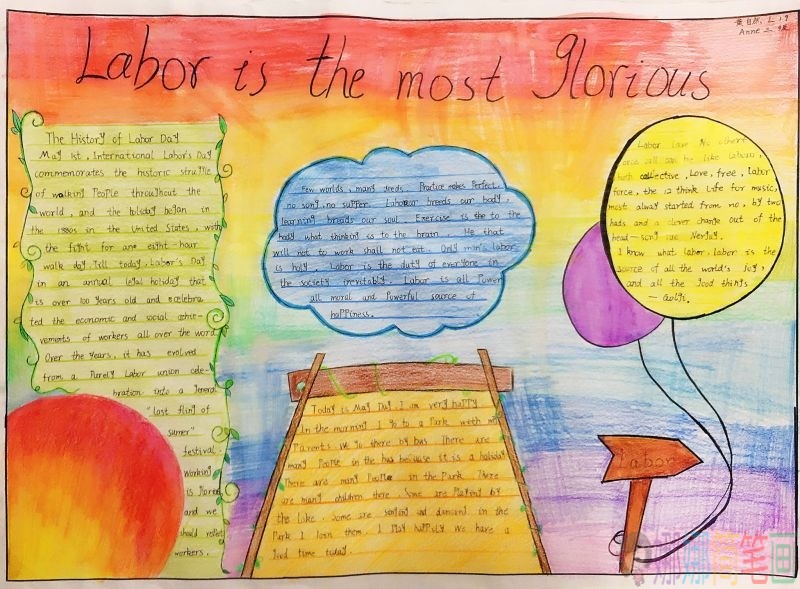 Anne
Labor is the most glorious
The History of Labor Day
May 1st, International Labor's Day
commemorates the historic struggle
of walking People throughout the
world, and the holiday began in
the 1880s in the United States, with
the fight for one eight-hour
walk day. Till today, Labor's Day
in an annual legal holiday that
is over 100 years old and celebra
ted the economic and social achie-
vements of workers all over the word
Over the years, it has evolved
from a Purely Labor union cele-
bration into a general
"last fling of
sumer"
festival.
working
is
and we
should reflect
workers.
Few worlds, many deeds. Practice makes Perfect.
no song, no supper. Laboeor breeds our body,
learning breeds our soul. Exercise is the to the
body what thinking is to the brain. He that
will not to work shall not eat. Only min's labor
is holy. Labor is the duty of everyone in
the society inevitably. Labor is all Power
all moral and Powerful source of
happiness.
Labor love No others
force all can be like Labour,
both collective, Love, free, Labor
force, the 12 think life for music,
most alway started from no, by two
hads and a clever change out of the
head-song
I know what labor, labor is the
source of all the world's joy,
and all the good things
Today is May Day. I am very happy
In the morning I go to a Park with my
Parents we go there by bus. There are
many People in the bus because it is a holiday
There are many People in the Park. There
are many children there. Some are Playing by
the Like. Some are and dancing in the
Park I Join them. I Play happily We have a
good time today.
Labor
娜娜简笔画